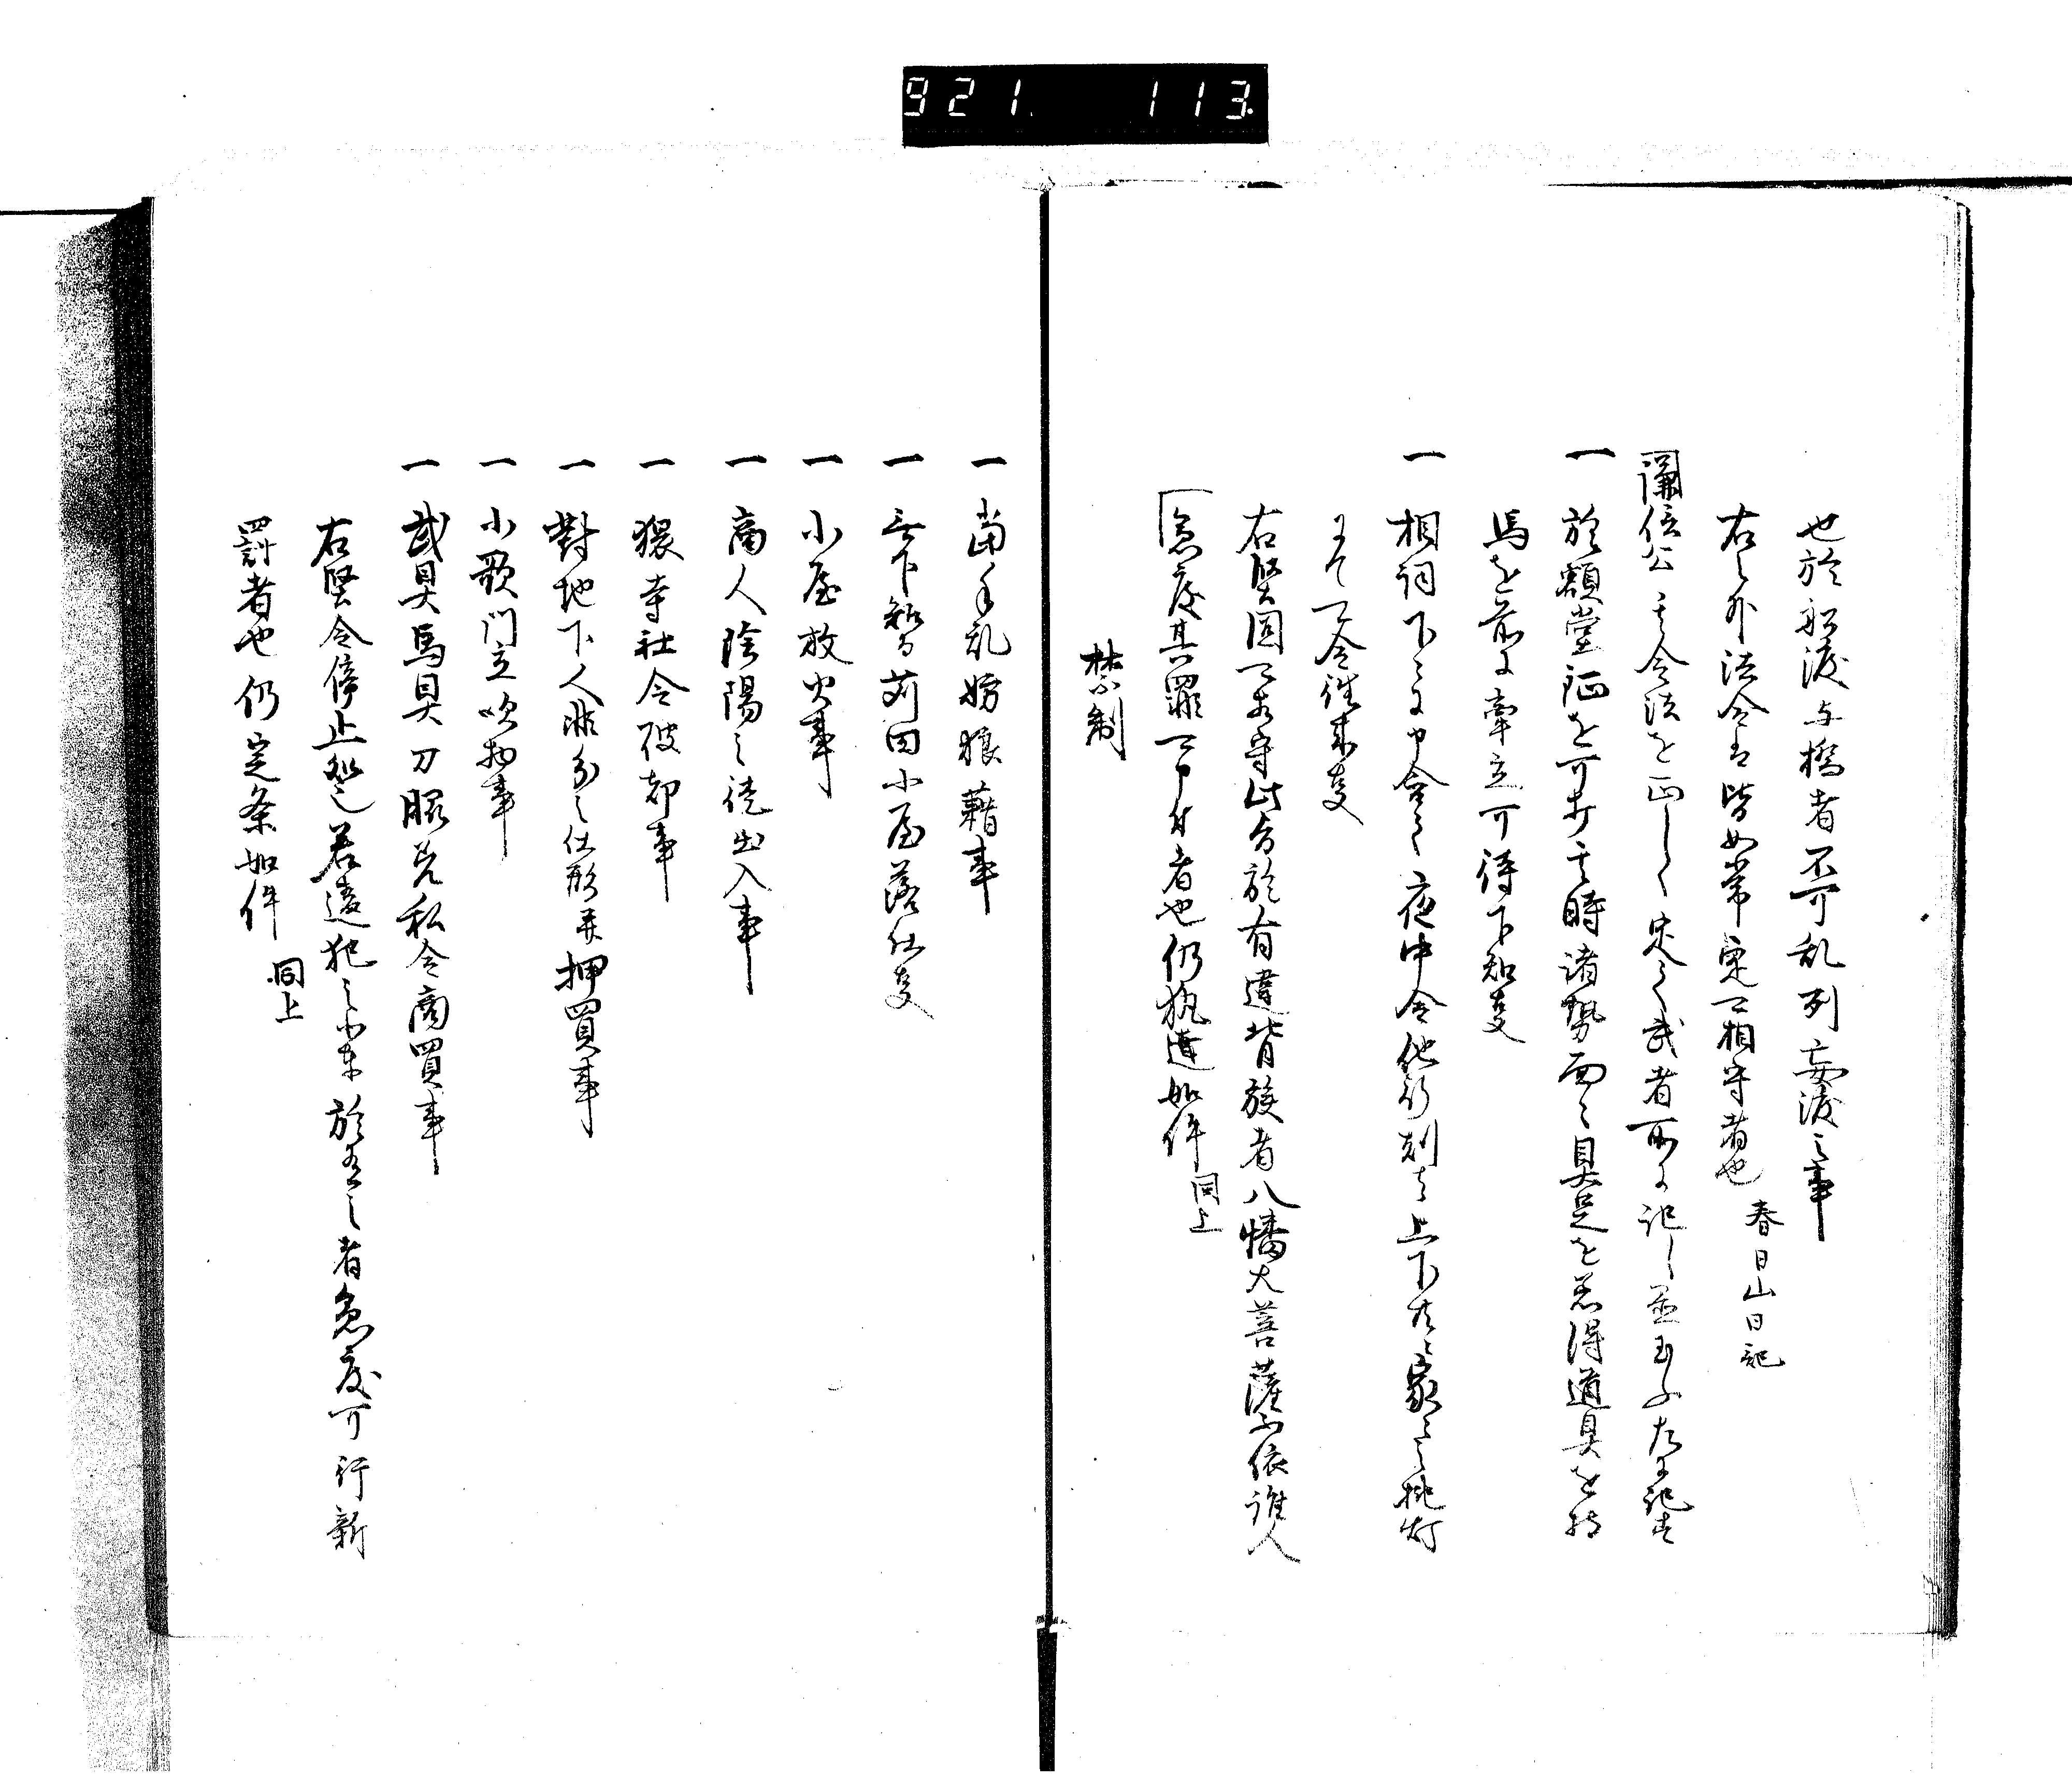 921. 113.
也於船渡与橋者不可乱列妄渡之事
右之外法令者皆如常定可相守者也 春日山日記
謙信公 其令法を正しく定之武者所に記し置玉ふ左に記す
一 於額堂証を可打其時諸勢面々具足を着得道具を持
馬を前に牽立可待下知事
一 相詞下々に申含之夜中令他行刻者上下共家之之挑灯
にて可令往来事
右堅固可相守此旨於有違背族者八幡大菩薩不依誰人
急度其罪可申付者也仍執達如件 同上
禁制
一 当手乱妨狼藉事
一 無下知苅田小屋落仕事
一 小屋放火事
一 商人陰陽之徒出入事
一 猥寺社令破却事
一 對地下人非分之仕形并押買事
一 小歌門立吹物事
一 武具馬具刀脇差私令商買事
右堅令停止訖若違犯之輩於有之者急度可行新
罰者也仍定条如件 同上